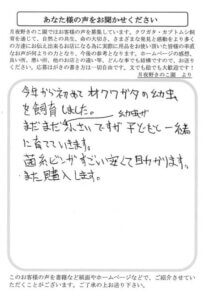 あなた様の声をお聞かせください
月夜野きのこ園ではお客様の声を募集しています。クワガタ・カブトムシ飼
育を通じて、自然との共生、命の大切さ、さまざまな発見と感動をより多く
の方達にお伝え出来るお店になる為に実際に用品をお使い頂いた皆様の率直
なお声が何よりのはげみとなり、今後の参考となります。ホームページの感想、
良い所、悪い所、他のお店との違い等、どんな事でも結構ですので、お送りく
ださい。応募はがきの書き方は一切自由です。文でも絵でも大歓迎です！
月夜野きのこ園 より
今年から初めて オオクワガタの幼虫
を飼育しました。
まだまだ小さい 幼虫が ですが 子どもと一緒
に育てていきます。
菌糸ビンがすごい安くて助かります。
また購入します。
このお客様の声を書籍など紙面やホームページなどで、ご紹介させてい
ただくことがございます。ご了承の上お送り下さい。